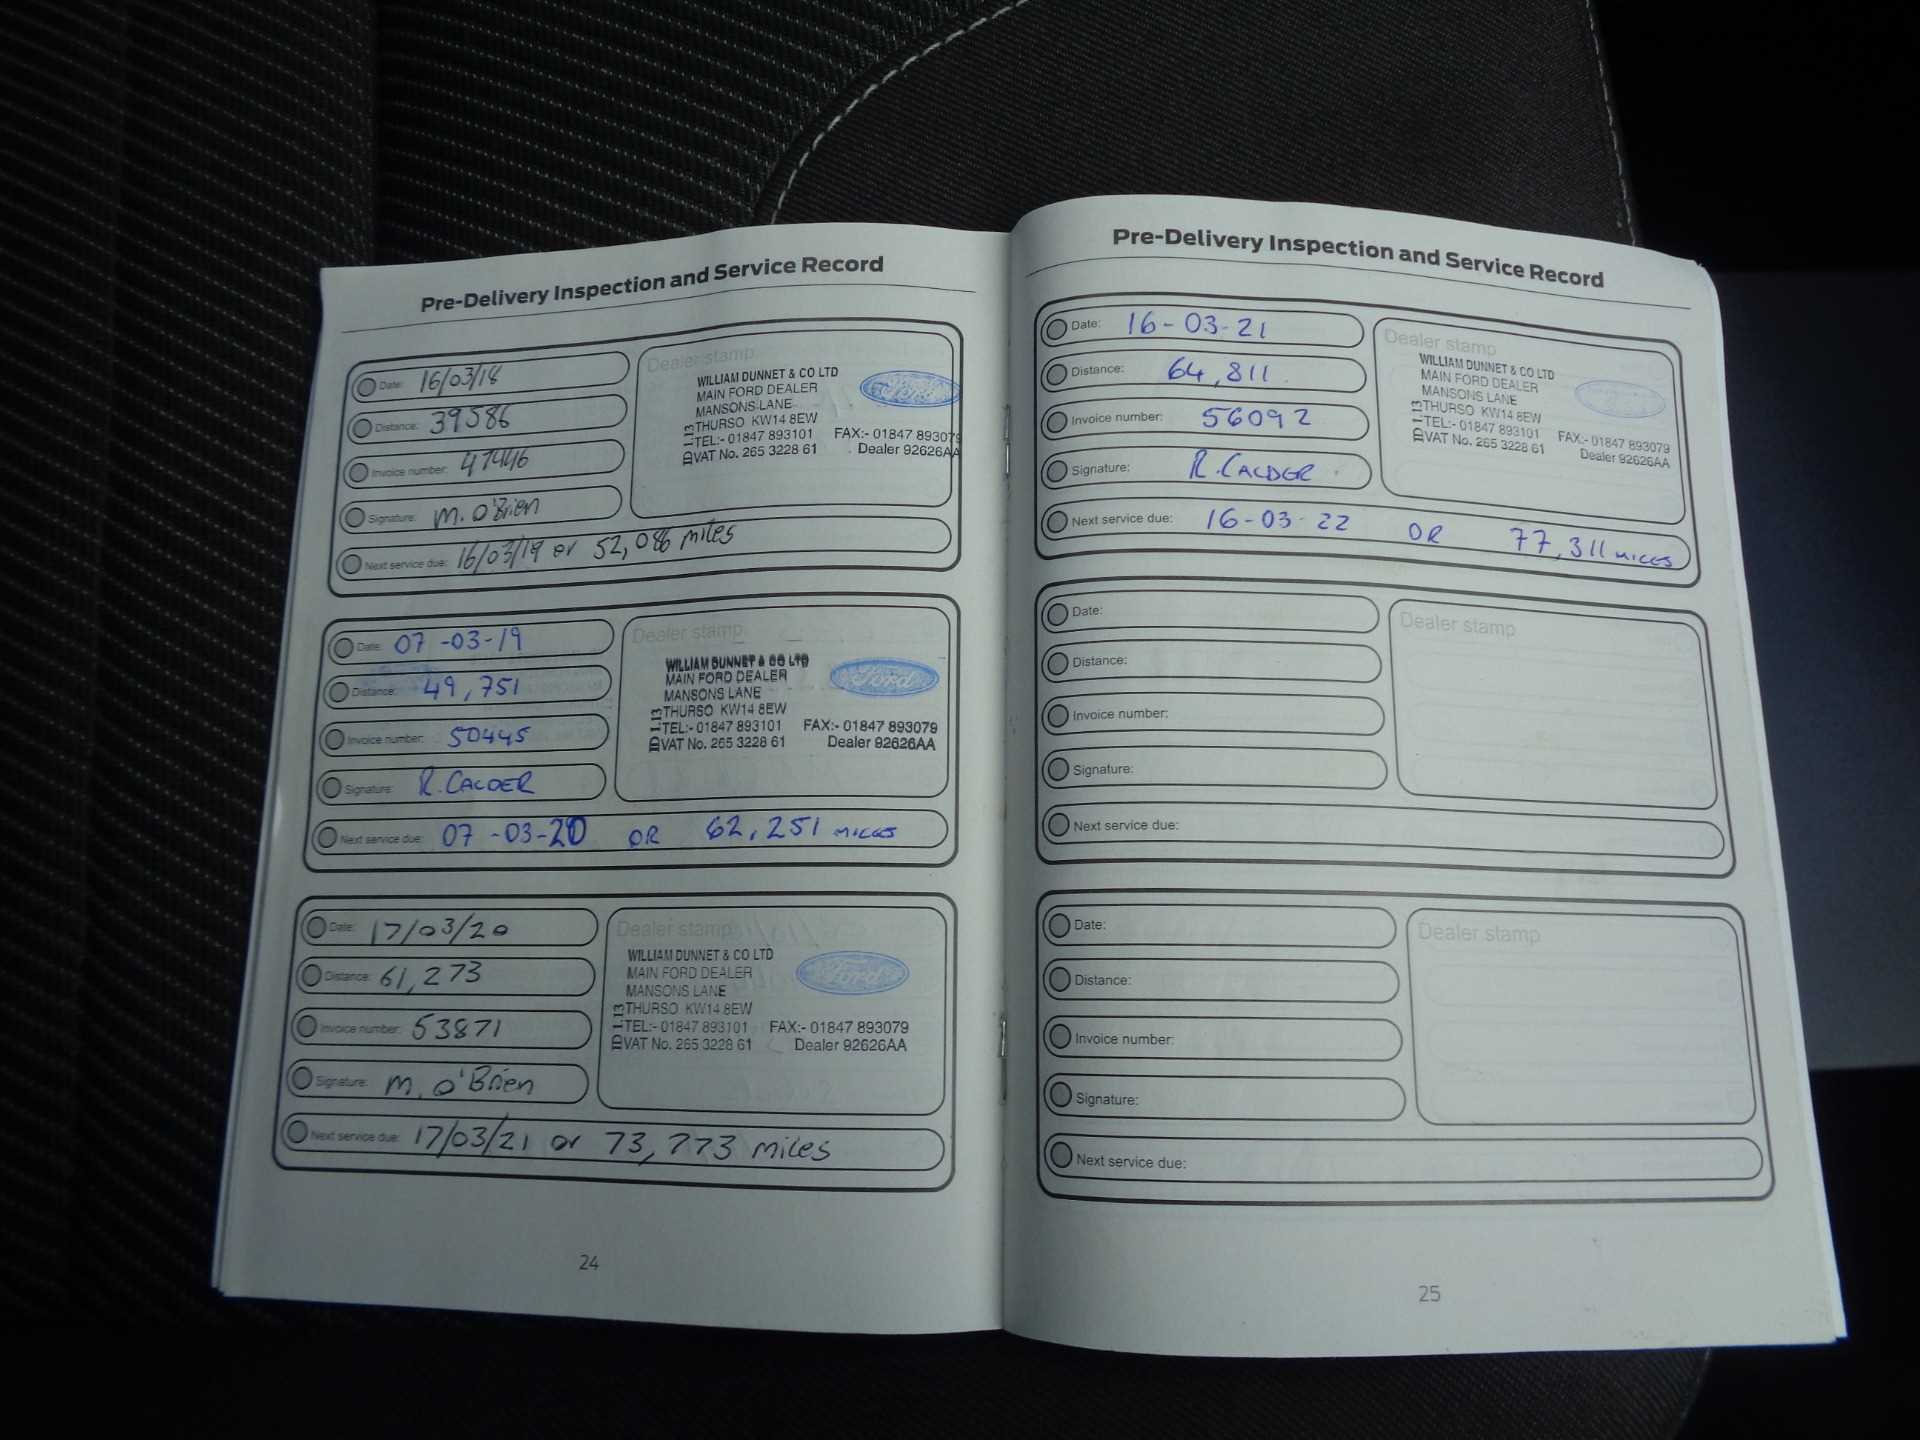 Pre-Delivery Inspection and Service Record
Date: 16/03/18
Distance: 39586
Invoice number: 47446
Signature: M. O'Brien
Next service due: 16/03/19 or 52,086 miles
Dealer stamp
WILLIAM DUNNET & CO LTD
MAIN FORD DEALER
MANSONS LANE
THURSO KW14 8EW
TEL:- 01847 893101 FAX:- 01847 893079
VAT No. 265 3228 61 Dealer 92626AA
ID 1.13
Ford
Date: 07-03-19
Distance: 49,751
Invoice number: 50445
Signature: R. CALDER
Next service due: 07-03-20 OR 62,251 MILES
Dealer stamp
WILLIAM DUNNET & CO LTD
MAIN FORD DEALER
MANSONS LANE
THURSO KW14 8EW
TEL:- 01847 893101 FAX:- 01847 893079
VAT No. 265 3228 61 Dealer 92626AA
ID 1.13
Ford
Date: 17/03/20
Distance: 61,273
Invoice number: 53871
Signature: M. O'Brien
Next service due: 17/03/21 or 73,773 miles
Dealer stamp
WILLIAM DUNNET & CO LTD
MAIN FORD DEALER
MANSONS LANE
THURSO KW14 8EW
TEL:- 01847 893101 FAX:- 01847 893079
VAT No. 265 3228 61 Dealer 92626AA
ID 1.13
Ford
24
Pre-Delivery Inspection and Service Record
Date: 16-03-21
Distance: 64,811
Invoice number: 56092
Signature: R. CALDER
Next service due: 16-03-22 OR 77,311 MILES
Dealer stamp
WILLIAM DUNNET & CO LTD
MAIN FORD DEALER
MANSONS LANE
THURSO KW14 8EW
TEL:- 01847 893101 FAX:- 01847 893079
VAT No. 265 3228 61 Dealer 92626AA
ID 1.13
Date:
Distance:
Invoice number:
Signature:
Next service due:
Dealer stamp
Date:
Distance:
Invoice number:
Signature:
Next service due:
Dealer stamp
25